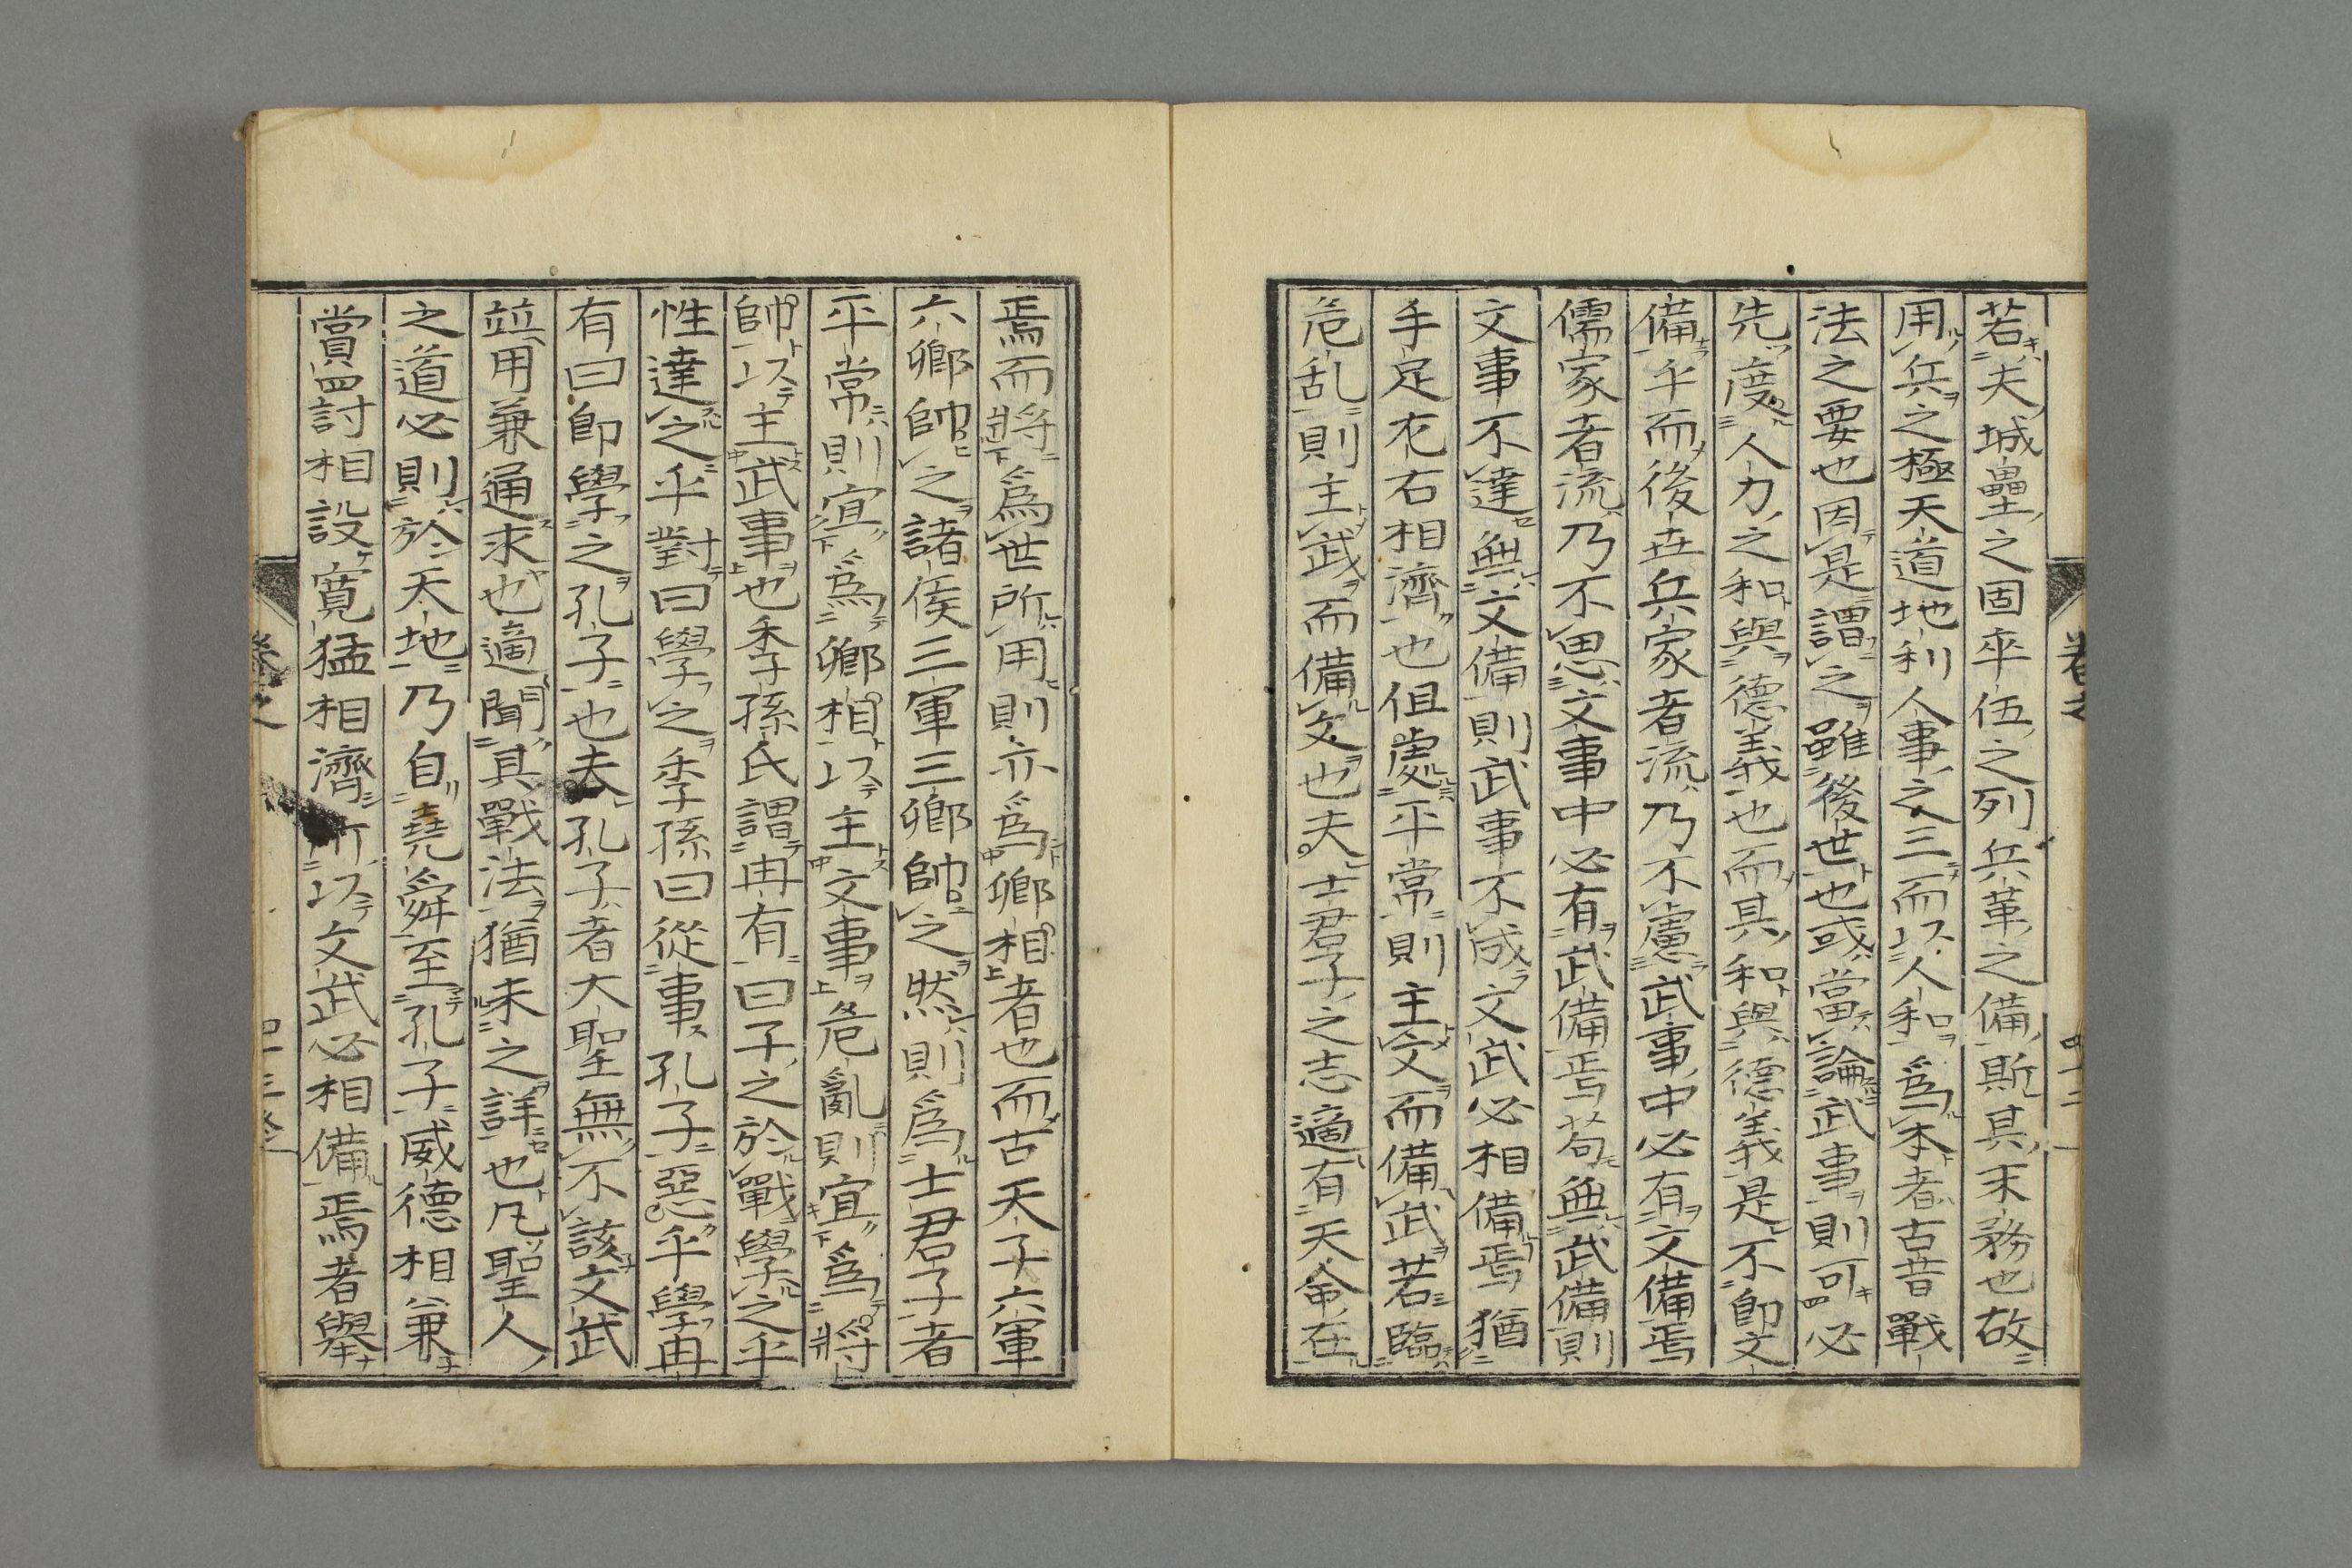 若夫城壘之固卒伍之列兵革之備斯其末務也故
用兵之極天道地利人事之三而以人和爲本者古昔戰
法之要也因是謂之雖後世也或當論武事則可必
先度人力之和與德義也而其和與德義是不卽文
備乎而後世兵家者流乃不慮武事中必有文備焉
儒家者流乃不思文事中必有武備焉苟無武備則
文事不達無文備則武事不成文武必相備焉猶
手足左右相濟也但處平常則主文而備武若臨
危乱則主武而備文也夫士君子之志適有天命在
焉而將爲世所用則亦爲鄉相者也而古天子六軍
六鄉帥之諸侯三軍三鄉帥之然則爲士君子者
平常則宜爲鄉相以主文事危亂則宜爲將
帥以主武事也季孫氏謂冉有曰子之於戰學之乎
性達之乎對曰學之季孫曰從事孔子惡乎學冉
有曰卽學之孔子也夫孔子者大聖無不該文武
竝用兼通求也適聞其戰法猶未之詳也凡聖人
之道必則於天地乃自堯舜至孔子威德相兼
賞罰討相設寬猛相濟所以文武必相備焉者舉